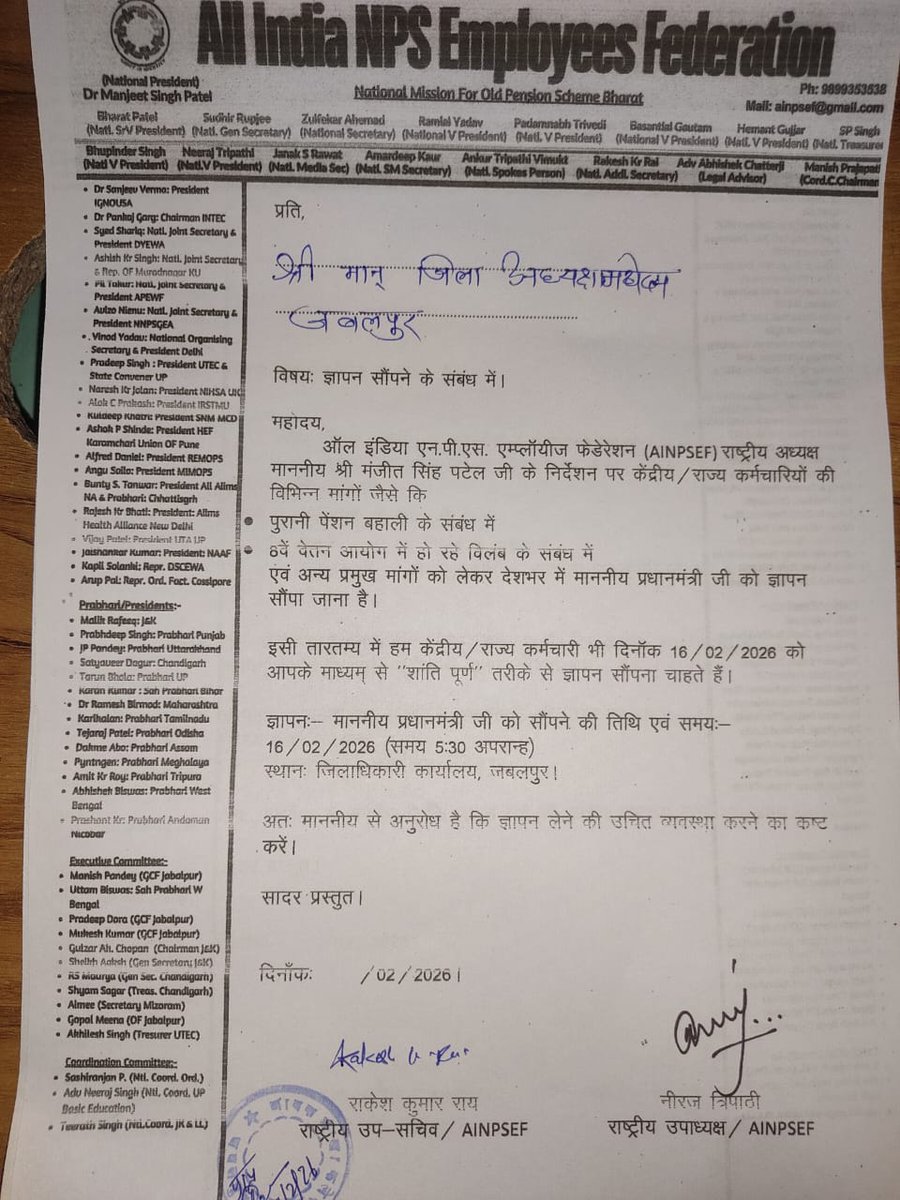 All India NPS Employees Federation
(National President)
Dr Manjeet Singh Patel
National Mission For Old Pension Scheme Bharat
Ph: 9899353538
Mail: ainpsef@gmail.com
Bharat Patel Sudhir Rupjee Zulfekar Ahemad Ramlal Yadav Padamnabh Trivedi Basantlal Gautam Hemant Gujjar SP Singh
(Natl. SrV President) (Natl. Gen Secretary) (National Secretary) (National V President) (Natl. V President) (National V President) (Natl. V President) (Natl. Treasurer
Bhupinder Singh Neeraj Tripathi Janak S Rawat Amardeep Kaur Ankur Tripathi Vimukt Rakesh Kr Rai Adv Abhishek Chatterji Manish Prajapati
(Natl V President) (Natl.V President) (Natl. Media Sec) (Natl. SM Secretary) (Natl. Spokes Person) (Natl. Addl. Secretary) (Legal Advisor) (Cord.C.Chairman
• Dr Sanjeev Verma: President
IGNOUSA
• Dr Pankaj Garg: Chairman INTEC
• Syed Shariq: Natl. Joint Secretary &
President DYEWA
• Ashish Kr Singh: Natl. Joint Secretary
& Rep. OF Muradnagar KU
• PIL Takur: Natl, Joint Secretary &
President APEWF
• Auizo Nienu: Natl. Joint Secretary &
President NNPSGEA
• Vinod Yadav: National Organising
Secretary & President Delhi
• Pradeep Singh : President UTEC &
State Convener UP
• Naresh Kr Jolan: President NIHSA
• Alok C Prakash: President IRSTMU
• Kuldeep Khatri: President SNM MCD
• Ashok P Shinde: President HEF
Karamchari Union OF Pune
• Alfred Daniel: President REMOPS
• Angu Saila: President MIMOPS
• Bunty S. Tanwar: President All Aiims
NA & Prabhari: Chhattisgrh
• Rajesh Kr Bhati: President: Aiims
Health Alliance New Delhi
• Vijay Patel: President UTA UP
• Jaishankar Kumar: President: NAAF
• Kapil Solanki: Repr. DSCEWA
• Arup Pal: Repr. Ord. Fact. Cossipore
Prabhari/Presidents:-
• Malik Rafeeq: J&K
• Prabhdeep Singh: Prabhari Punjab
• JP Pandey: Prabhari Uttarakhand
• Satyaveer Dagur: Chandigarh
• Tarun Bhola: Prabhari UP
• Karan Kumar : Sah Prabhari Bihar
• Dr Ramesh Birmod: Maharashtra
• Karihalan: Prabhari Tamilnadu
• Tejaraj Patel: Prabhari Odisha
• Dakme Abo: Prabhari Assam
• Pyntngen: Prabhari Meghalaya
• Amit Kr Roy: Prabhari Tripura
• Abhishek Biswas: Prabhari West
Bengal
• Prashant Kr: Prabhari Andaman
Nicobar
Executive Committee:-
• Manish Pandey (GCF Jabalpur)
• Uttam Biswas: Sah Prabhari W
Bengal
• Pradeep Dora (GCF Jabalpur)
• Mukesh Kumar (GCF Jabalpur)
• Gulzar Ah. Chopan (Chairman J&K)
• Sheikh Aaksh (Gen Secretary J&K)
• RS Maurya (Gen Sec. Chandigarh)
• Shyam Sagar (Treas. Chandigarh)
• Aimee (Secretary Mizoram)
• Gopal Meena (OF Jabalpur)
• Akhilesh Singh (Tresurer UTEC)
Coordination Committee:-
• Sashiranjan P. (Ntl. Coord. Ord.)
• Adv Neeraj Singh (Ntl. Coord. UP
Basic Education)
• Teerath Singh (Ntl.Coord. JK & LL)
प्रति,
श्री मान् जिला अध्यक्ष महोदय
जबलपुर
विषयः ज्ञापन सौंपने के संबंध में।
महोदय,
ऑल इंडिया एन.पी.एस. एम्प्लॉयीज फेडेरेशन (AINPSEF) राष्ट्रीय अध्यक्ष
माननीय श्री मंजीत सिंह पटेल जी के निर्देशन पर केंद्रीय/राज्य कर्मचारियों की
विभिन्न मांगों जैसे कि
• पुरानी पेंशन बहाली के संबंध में
• 8वें वेतन आयोग में हो रहे विलंब के संबंध में
एवं अन्य प्रमुख मांगों को लेकर देशभर में माननीय प्रधानमंत्री जी को ज्ञापन
सौंपा जाना है।
इसी तारतम्य में हम केंद्रीय/राज्य कर्मचारी भी दिनॉक 16/02/2026 को
आपके माध्यम् से "शांति पूर्ण" तरीके से ज्ञापन सौंपना चाहते हैं।
ज्ञापनः– माननीय प्रधानमंत्री जी को सौंपने की तिथि एवं समयः–
16/02/2026 (समय 5:30 अपरान्ह)
स्थानः जिलाधिकारी कार्यालय, जबलपुर।
अतः माननीय से अनुरोध है कि ज्ञापन लेने की उचित व्यवस्था करने का कष्ट
करें।
सादर प्रस्तुत।
दिनाँकः /02/2026।
राकेश कुमार राय
राष्ट्रीय उप-सचिव/AINPSEF
नीरज त्रिपाठी
राष्ट्रीय उपाध्यक्ष/AINPSEF